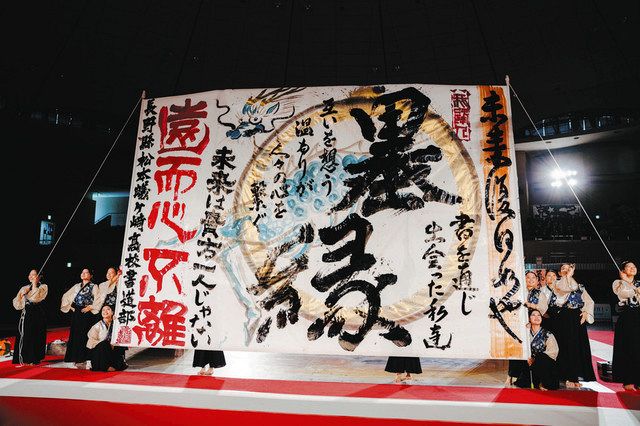 書を通じ
出会った私達
墨縁
互いを想う
温もりが
人々の心を
繋ぐ
絆
未来は貴方一人じゃない
遠而心不離
長野県松本蟻ヶ崎高校書道部